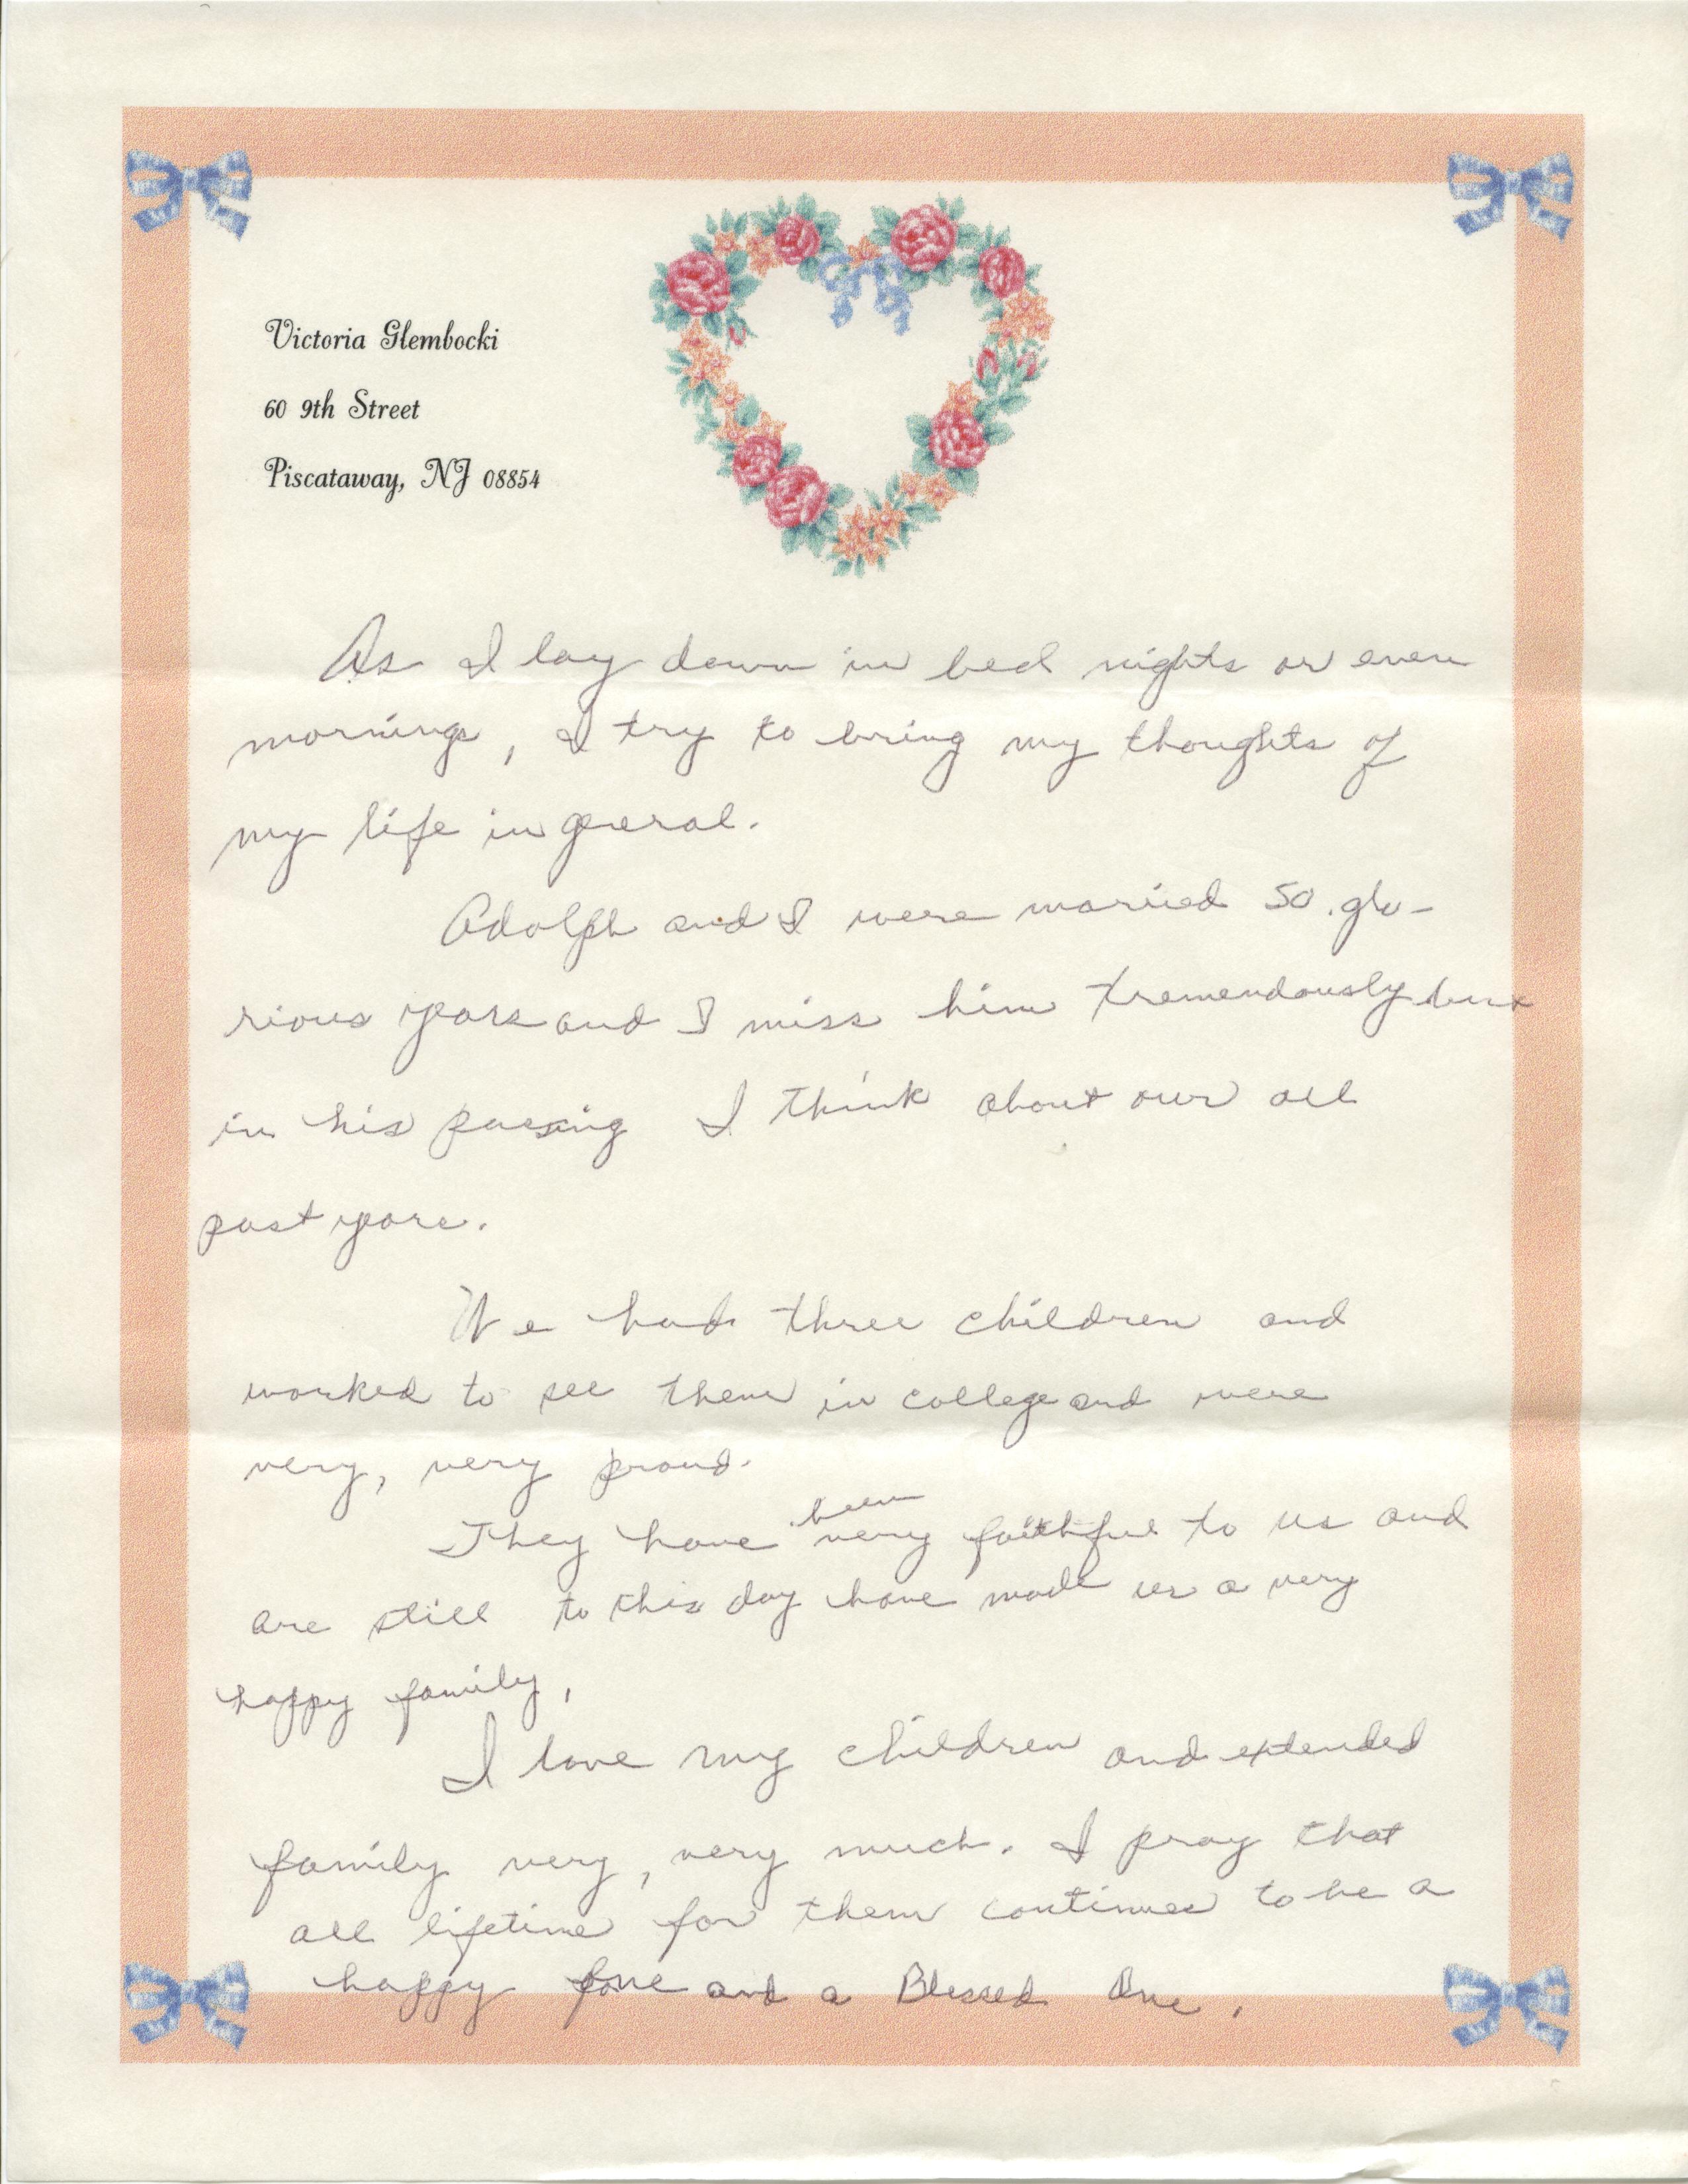 Victoria Glembocki
60 9th Street
Piscataway, NJ 08854
As I lay down in bed nights or even
mornings, I try to bring my thoughts of
my life in general.
Adolph and I were married 50 glo-
rious years and I miss him tremendously but
in his passing I think about our all
past years.
We had three children and
worked to see them in college and were
very, very proud.
They have been very faithful to us and
are still to this day have made us a very
happy family,
I love my children and extended
family very, very much. I pray that
all lifetime for them continues to be a
happy one and a Blessed One.